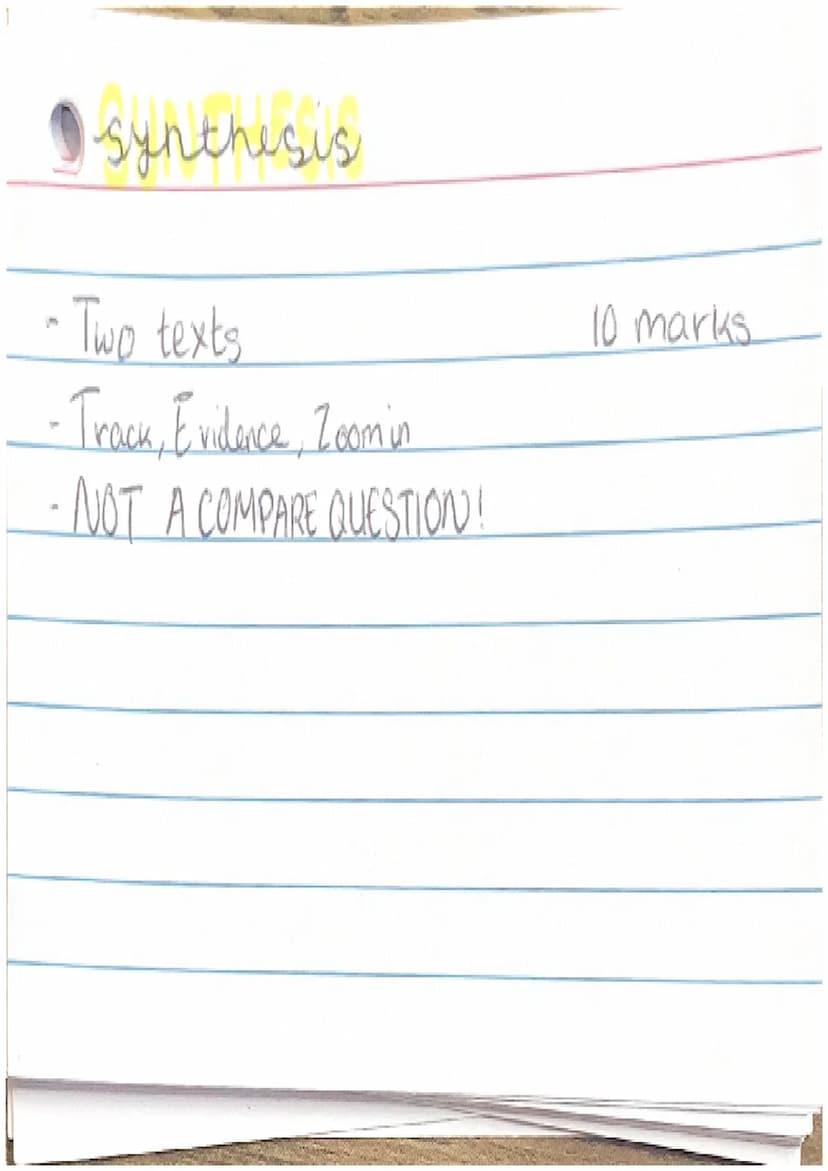 SYNTHESIS
synthesis
- Two texts 10 marks
- Track, Evidence, Zoom in
- NOT A COMPARE QUESTION!